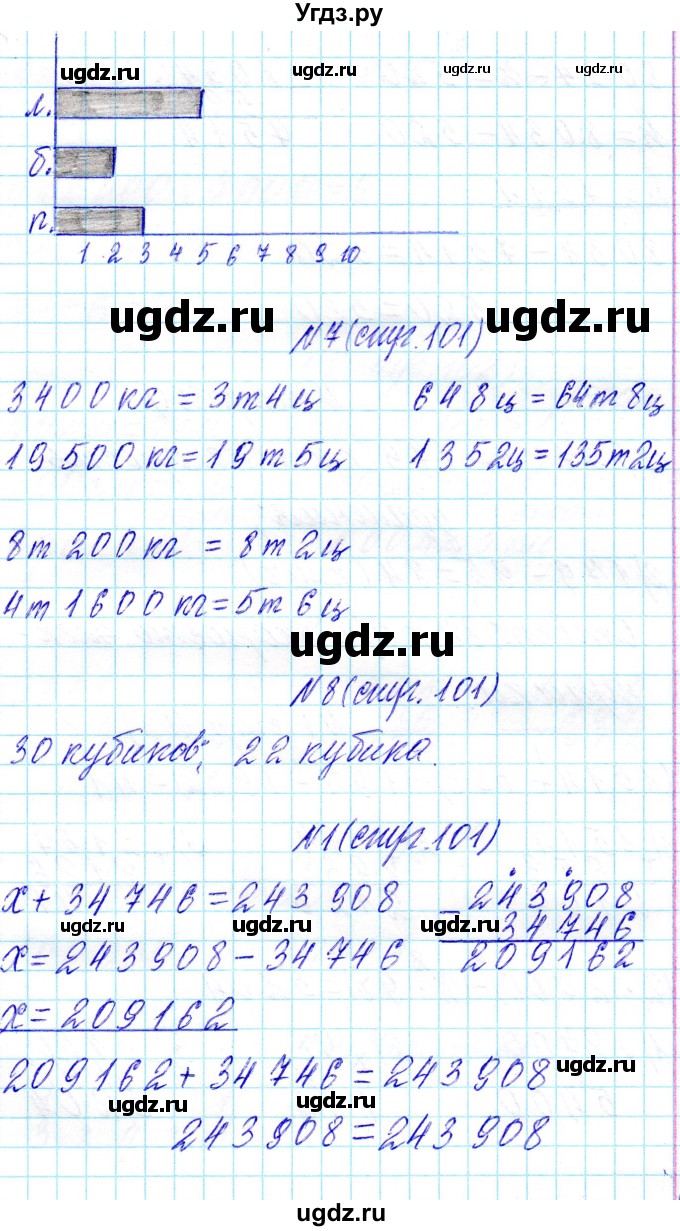 Угдз.ру
ugdz.ru ugdz.ru ugdz.ru ugdz.ru
л.
б.
п.
1 2 3 4 5 6 7 8 9 10
ugdz.ru ugdz.ru
№7 (стр. 101)
3400 кг = 3т 4ц 648ц = 64т 8ц
19 500 кг = 19т 5ц 1352ц = 135т 2ц
8т 200 кг = 8т 2ц
4т 1600 кг = 5т 6ц
ugdz.ru
№8 (стр. 101)
30 кубиков; 22 кубика.
№1 (стр. 101)
х + 34 746 = 243 908 - 243 908
34 746
ugdz.ru ugdz.ru ugdz.ru
х = 243 908 - 34 746 209162
х = 209162
209162 + 34 746 = 243 908
ugdz.ru
ugdz.ru ugdz.ru
243 908 = 243 908
ugdz.ru